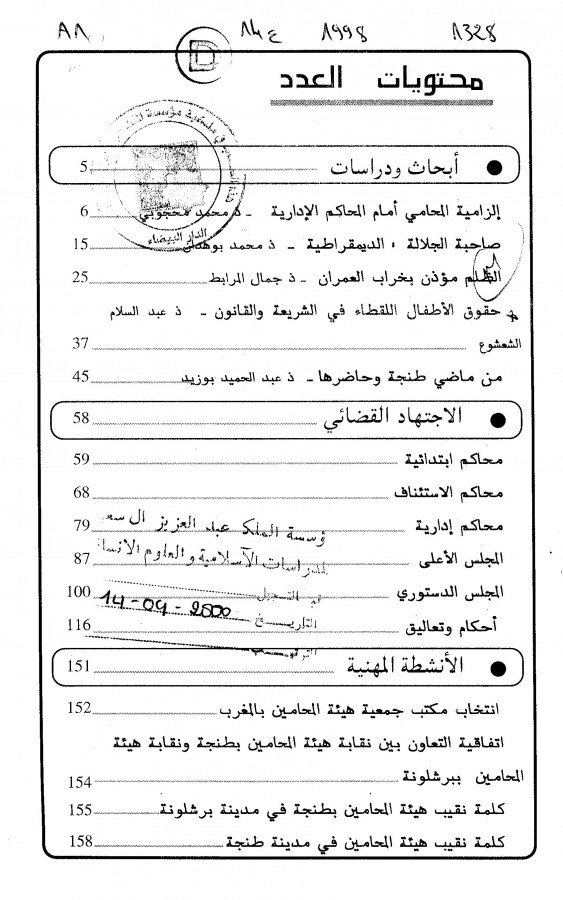 A81 14ع 1998 1328
D
محتويات العدد
● أبحاث ودراسات 5
إلزامية المحامي أمام المحاكم الإدارية - ذ محمد محجوبي 6
صاحبة الجلالة : الديمقراطية - ذ محمد بوهدان 15
الظلم مؤذن بخراب العمران - ذ جمال المرابط 25
حقوق الأطفال اللقطاء في الشريعة والقانون - ذ عبد السلام
الشعشوع 37
من ماضي طنجة وحاضرها - ذ عبد الحميد بوزيد 45
● الاجتهاد القضائي 58
محاكم ابتدائية 59
محاكم الاستئناف 68
محاكم إدارية 79
مؤسسة الملك عبد العزيز آل سعـ
المجلس الأعلى 87
للدراسات الإسلامية والعلوم الانسا
المجلس الدستوري 100
تم التسجيل
14-09-2000
التاريـخ
أحكام وتعاليق 116
● الأنشطة المهنية 151
انتخاب مكتب جمعية هيئة المحامين بالمغرب 152
اتفاقية التعاون بين نقابة هيئة المحامين بطنجة ونقابة هيئة
المحامين ببرشلونة 154
كلمة نقيب هيئة المحامين بطنجة في مدينة برشلونة 155
كلمة نقيب هيئة المحامين في مدينة طنجة 158
الدار البيضاء